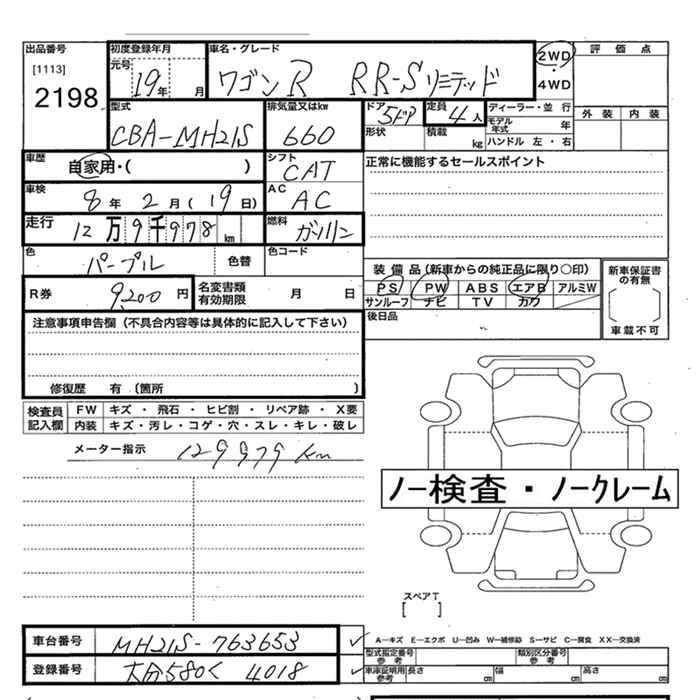 出品番号 初度登録年月 車名・グレード 評価点
[1113] 元号 19年 月 ワゴンR RR-Sリミテッド 2WD・4WD
2198
型式 排気量又はkw ドア 5ドア 定員 4人 ディーラー・並行 外装 内装
CBA-MH21S 660 形状 積載 kg モデル年式 年
ハンドル 左・右
車歴 自家用・( ) シフト CAT 正常に機能するセールスポイント
車検 8年2月(19日) AC AC
走行 12万9千978km 燃料 ガソリン
色 パープル 色替 色コード
装備品(新車からの純正品に限り○印) 新車保証書の有無
R券 9,200円 名変書類有効期限 月 日 PS PW ABS エアB アルミW
サンルーフ ナビ TV カワ
注意事項申告欄(不具合内容等は具体的に記入して下さい) 後日品 車載不可
修復歴 有 (箇所 )
検査員記入欄 FW キズ・飛石・ヒビ割・リペア跡・X要
内装 キズ・汚レ・コゲ・穴・スレ・キレ・破レ
メーター指示 129979km
ノー検査・ノークレーム
スペアT
[ ]
A-キズ E-エクボ U-凹み W-補修跡 S-サビ C-腐食 XX-交換済
車台番号 MH21S-763653 型式指定番号 参考 類別区分番号 参考
登録番号 大分580く 4018 車庫証明用 参考 長さ cm 幅 cm 高さ cm